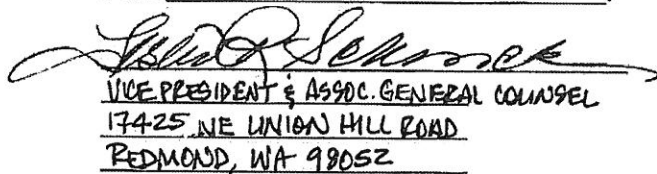 VICE PRESIDENT & ASSOC. GENERAL COUNSEL
17425 NE UNION HILL ROAD
REDMOND, WA 98052